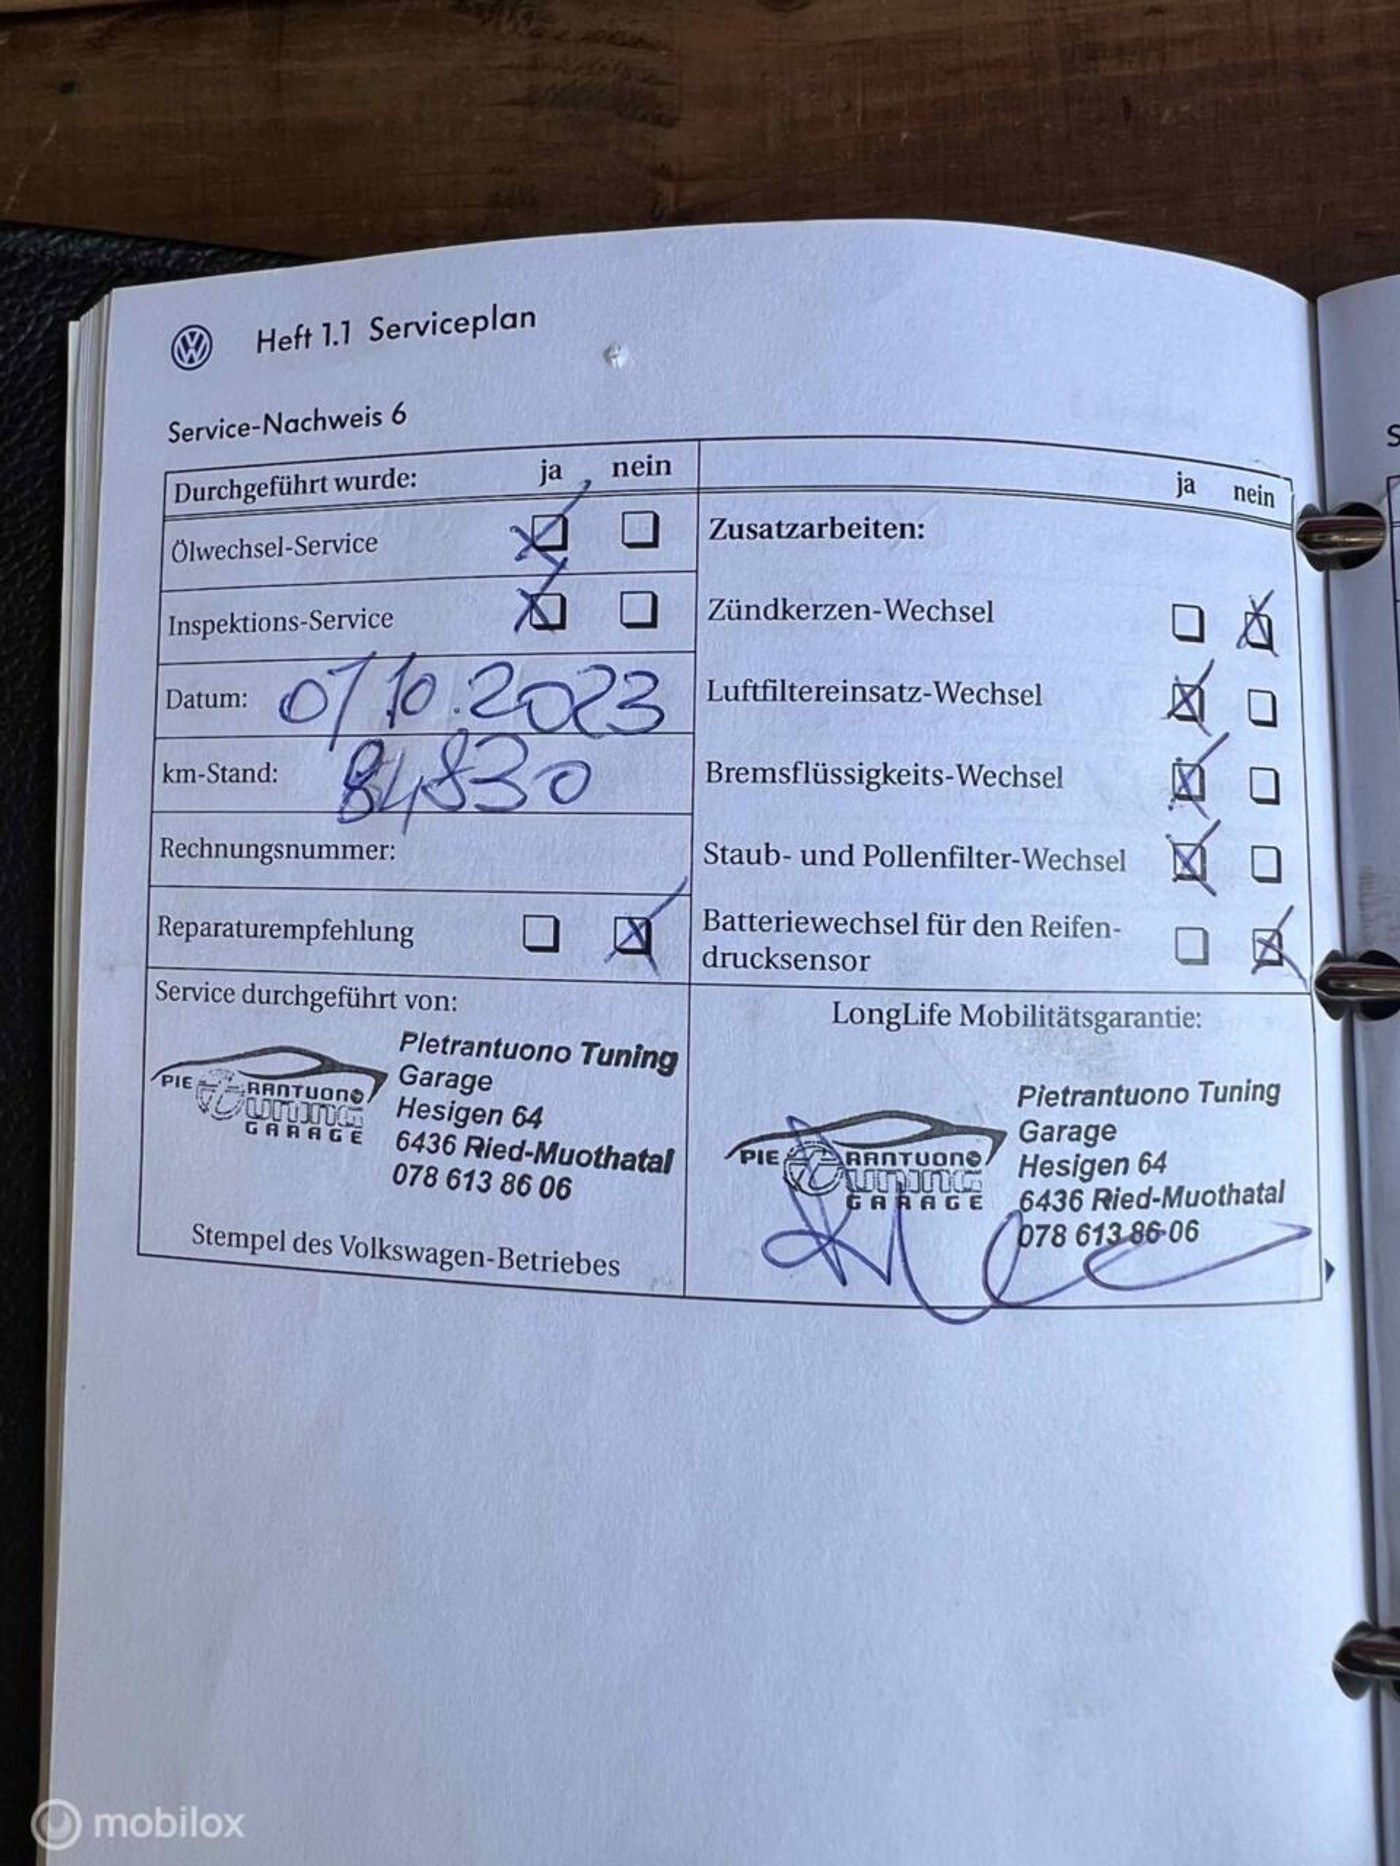 Heft 1.1 Serviceplan
Service-Nachweis 6
Durchgeführt wurde: ja nein
Ölwechsel-Service
Inspektions-Service
Datum: 07/10.2023
km-Stand: 84830
Rechnungsnummer:
Reparaturempfehlung
ja nein
Zusatzarbeiten:
Zündkerzen-Wechsel
Luftfiltereinsatz-Wechsel
Bremsflüssigkeits-Wechsel
Staub- und Pollenfilter-Wechsel
Batteriewechsel für den Reifen-
drucksensor
Service durchgeführt von:
PIETRANTUONO
TUNING
GARAGE
Pietrantuono Tuning
Garage
Hesigen 64
6436 Ried-Muothatal
078 613 86 06
Stempel des Volkswagen-Betriebes
LongLife Mobilitätsgarantie:
PIETRANTUONO
TUNING
GARAGE
Pietrantuono Tuning
Garage
Hesigen 64
6436 Ried-Muothatal
078 613 86 06
S
mobilox